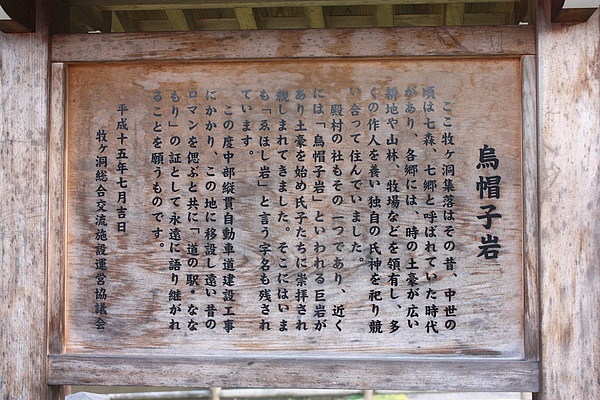 烏帽子岩
ここ牧ヶ洞集落はその昔、中世の
頃は七森、七郷と呼ばれていた時代
があり、各郷には、時の土豪が広い
耕地や山林、牧場などを領有し、多
くの作人を養い独自の氏神を祀り競
い合って住んでいました。
殿村の社もその一つであり、近く
には「烏帽子岩」といわれる巨岩が
あり土豪を始め氏子たちに崇拝され
親しまれてきました。そこにはいま
も「ゑほし岩」と言う字名も残され
ています。
この度中部縦貫自動車道建設工事
にかかり、この地に移設し遠い昔の
ロマンを偲ぶと共に「道の駅・なな
もり」の証として永遠に語り継がれ
ることを願うものです。
平成十五年七月吉日
牧ヶ洞総合交流施設運営協議会